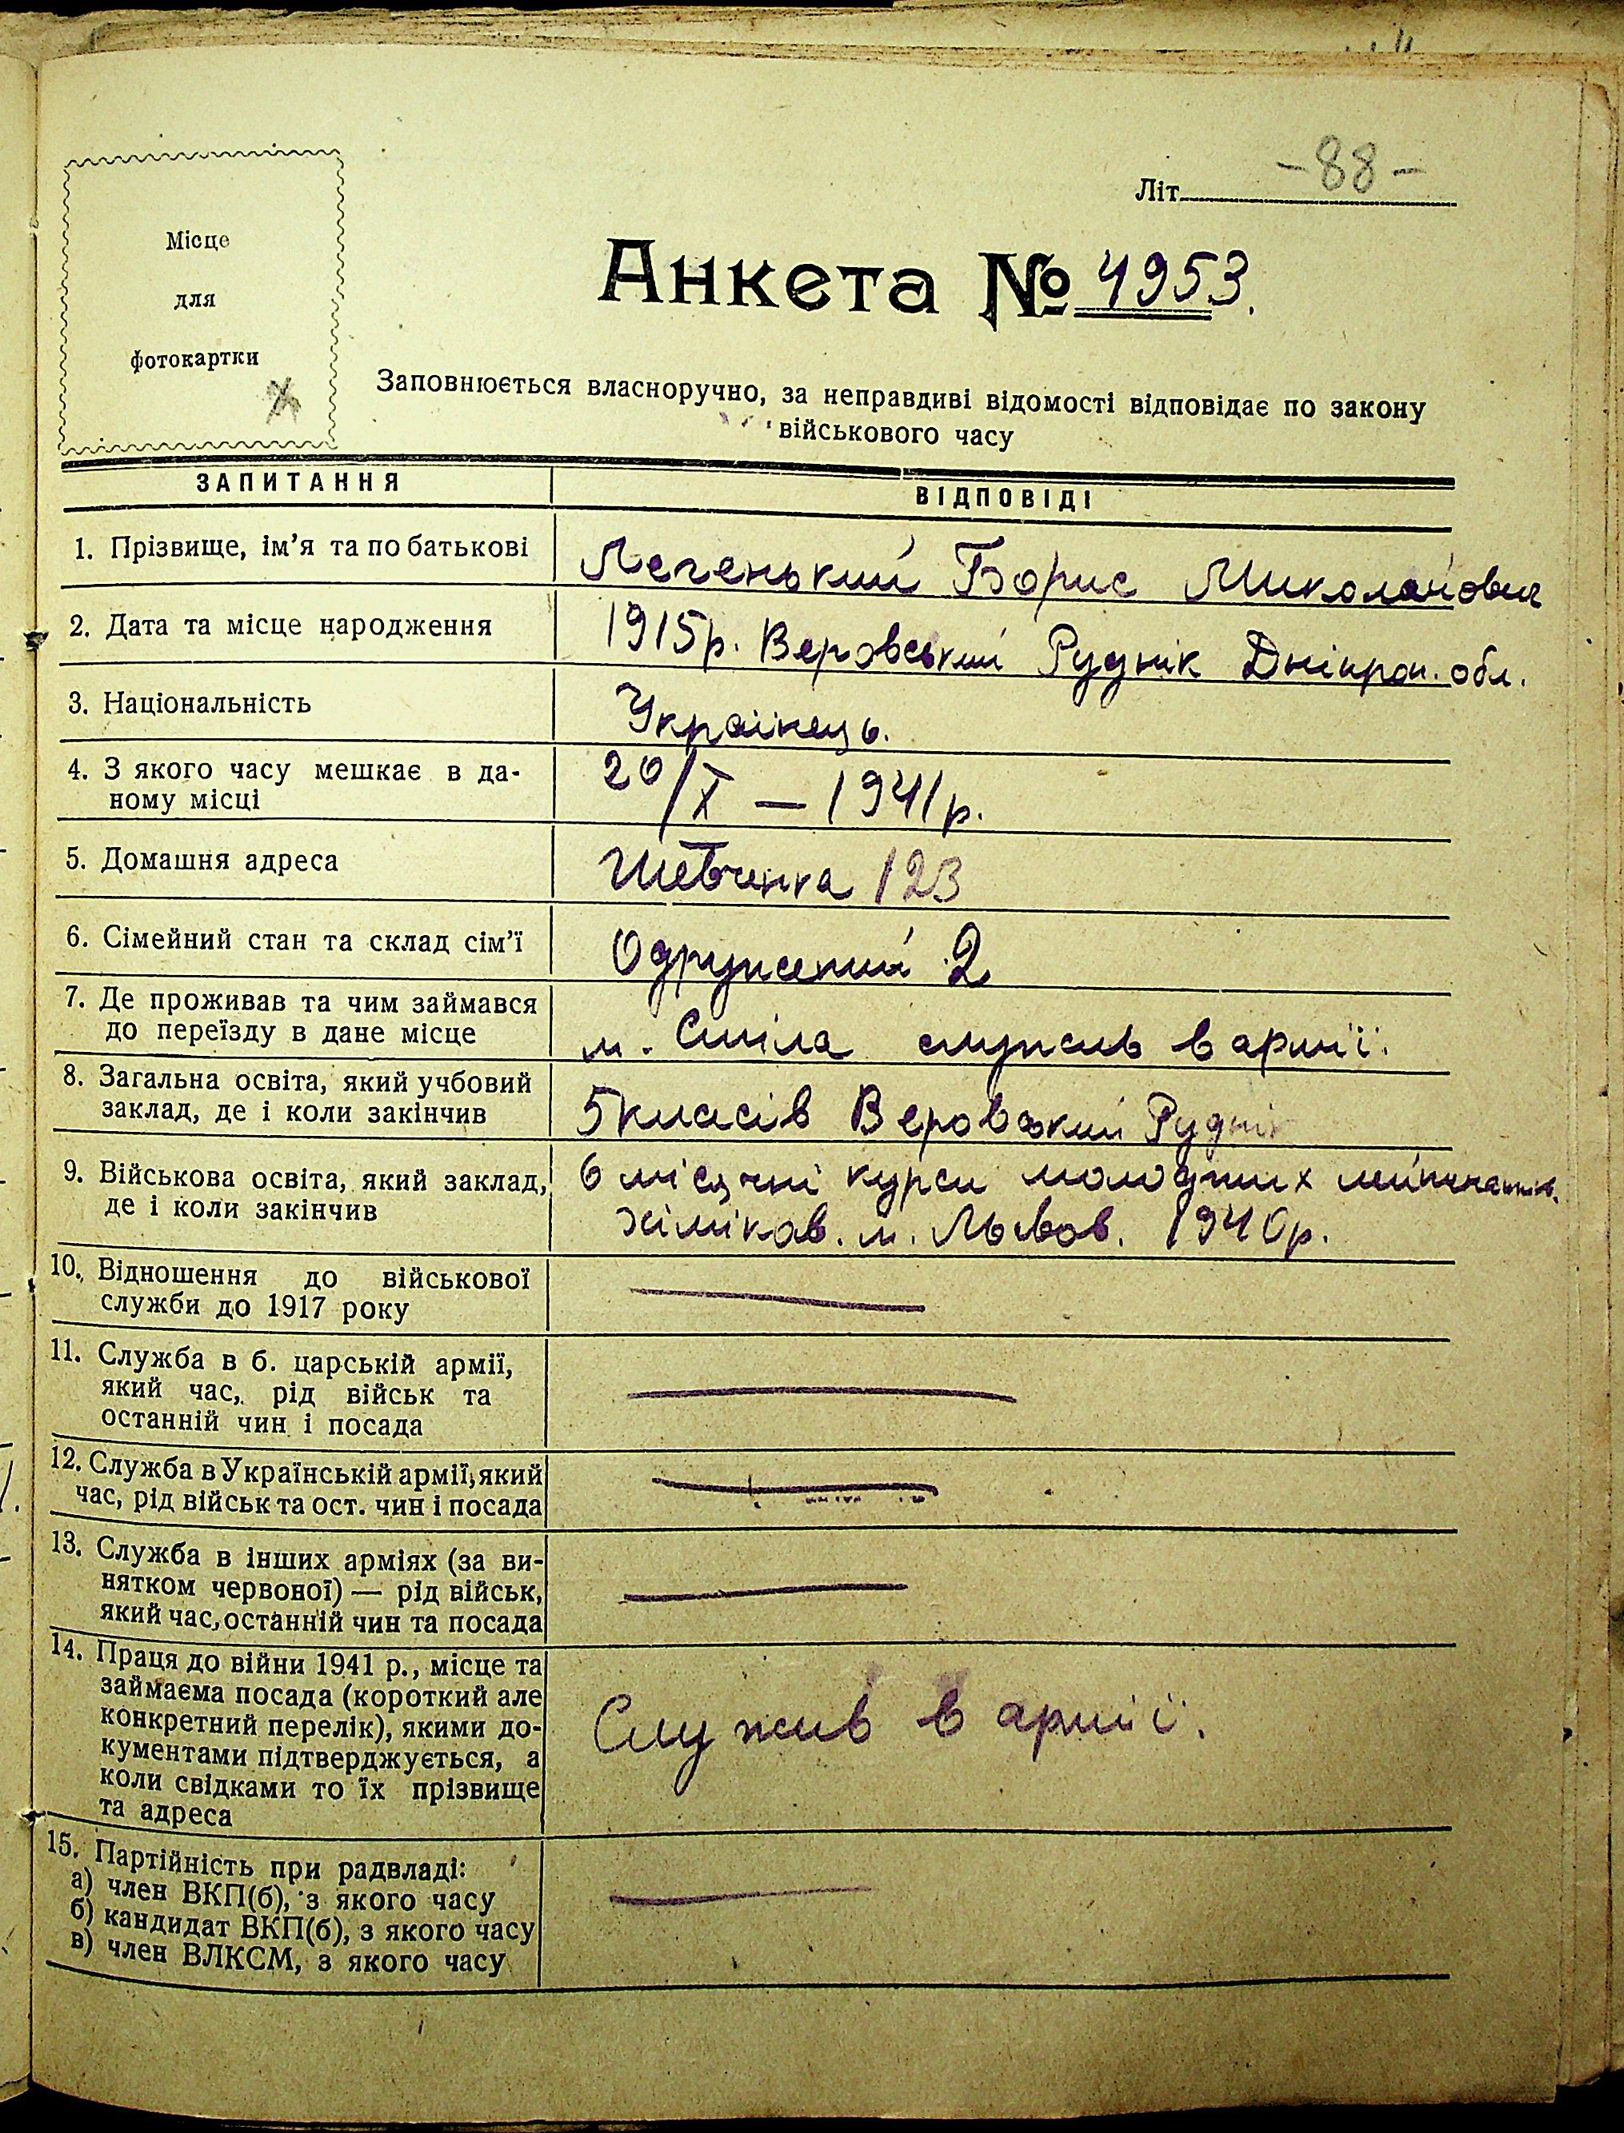 -88-
Літ.
Місце
для
фотокартки
Анкета № 4953.
Заповнюється власноручно, за неправдиві відомості відповідає по закону
військового часу
ЗАПИТАННЯ ВІДПОВІДІ
1. Прізвище, ім’я та по батькові Легенький Борис Миколайович
2. Дата та місце народження 1915р. Веровський Руднік Дніпроп. обл.
3. Національність Українець.
4. З якого часу мешкає в да-
ному місці 20/X — 1941р.
5. Домашня адреса Шевченка 123
6. Сімейний стан та склад сім’ї Одружений 2
7. Де проживав та чим займався
до переїзду в дане місце м. Сміла служив в армії.
8. Загальна освіта, який учбовий
заклад, де і коли закінчив 5 класів Веровський Руднік
9. Військова освіта, який заклад, 6 місячні курси молодших
де і коли закінчив хіміков. м. Львов. 1940р.
10. Відношення до військової
служби до 1917 року —
11. Служба в б. царській армії,
який час, рід військ та
останній чин і посада —
12. Служба в Українській армії, який
час, рід військ та ост. чин і посада —
13. Служба в інших арміях (за ви-
нятком червоної) — рід військ,
який час, останній чин та посада —
14. Праця до війни 1941 р., місце та
займаєма посада (короткий але
конкретний перелік), якими до-
кументами підтверджується, а
коли свідками то їх прізвище
та адреса Служив в армії.
15. Партійність при радвладі:
а) член ВКП(б), з якого часу
б) кандидат ВКП(б), з якого часу
в) член ВЛКСМ, з якого часу —